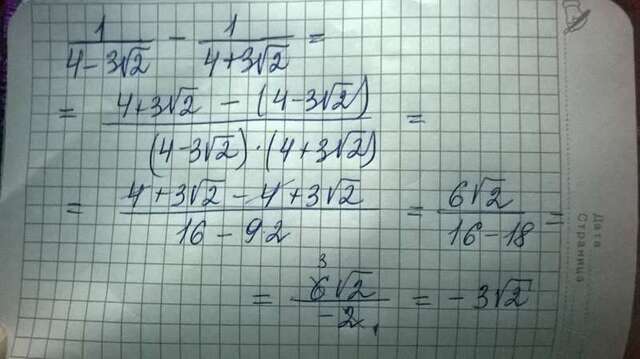 1/(4-3√2) - 1/(4+3√2) =
= (4+3√2 - (4-3√2))/((4-3√2)·(4+3√2)) =
= (4+3√2-4+3√2)/(16-9·2) = 6√2/(16-18) =
= 6√2/-2 = -3√2
3
1
Дата
Страница